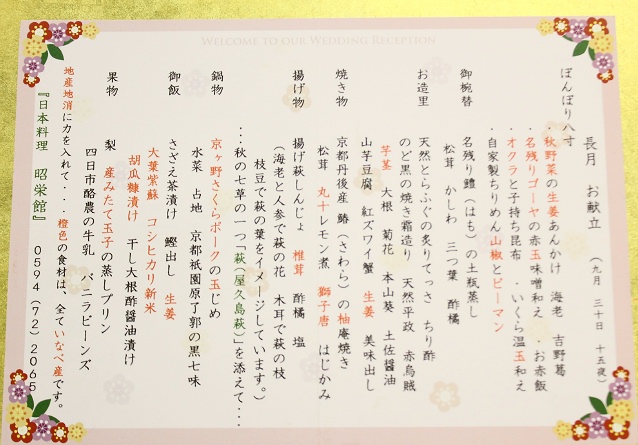 WELCOME TO OUR WEDDING RECEPTION
長月 お献立 (九月 三十日 十五夜)
ぼんぼり八寸
・秋野菜の生姜あんかけ 海老 吉野葛
・名残りゴーヤの赤玉味噌和え ・お赤飯
・オクラと子持ち昆布 ・いくら温玉和え
・自家製ちりめん山椒とピーマン
御椀替
名残り鱧(はも)の土瓶蒸し
松茸 かしわ 三つ葉 酢橘
お造里
天然とらふぐの炙りてっさ ちり酢
のど黒の焼き霜造り 天然平政 赤烏賊
芋茎 大根 菊花 本山葵 土佐醤油
山芋豆腐 紅ズワイ蟹 生姜 美味出し
焼き物
京都丹後産 鰆(さわら)の柚庵焼き
松茸 丸十レモン煮 獅子唐 はじかみ
揚げ物
揚げ萩しんじょ 椎茸 酢橘 塩
(海老と人参で萩の花 木耳で萩の枝
枝豆で萩の葉をイメージしています。)
・・・秋の七草の一つ「萩(屋久島萩)」を添えて・・・
鍋物
京ヶ野さくらポークの玉じめ
水菜 占地 京都祇園原了郭の黒七味
御飯
さざえ茶漬け 鰹出し 生姜
大葉紫蘇 コシヒカリ新米
胡瓜糠漬け 干し大根酢醤油漬け
果物
梨 産みたて玉子の蒸しプリン
四日市酪農の牛乳 バニラビーンズ
地産地消に力を入れて・・・橙色の食材は、全ていなべ産です。
『日本料理 昭栄館』 0594(72)2065